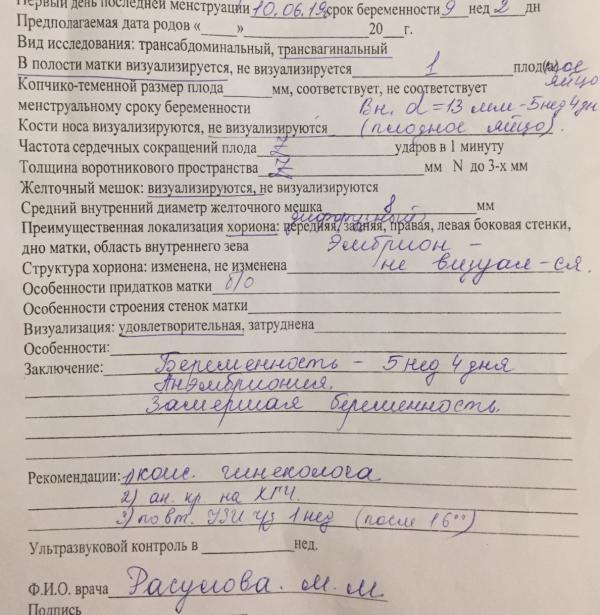 Первый день последней менструации 10.06.19г срок беременности 9 нед 2 дн
Предполагаемая дата родов «_____» __________ 20___г.
Вид исследования: трансабдоминальный, трансвагинальный
В полости матки визуализируется, не визуализируется 1 плод(а) ное яйцо
Копчико-теменной размер плода ______ мм, соответствует, не соответствует
менструальному сроку беременности Вн. d = 13 мм - 5 нед 4 дн
Кости носа визуализируются, не визуализируются (плодное яйцо).
Частота сердечных сокращений плода ______ ударов в 1 минуту
Толщина воротникового пространства ______ мм N до 3-х мм
Желточный мешок: визуализируются, не визуализируются
Средний внутренний диаметр желточного мешка 8 мм
диффузный
Преимущественная локализация хориона: передняя, задняя, правая, левая боковая стенки,
дно матки, область внутреннего зева Эмбрион -
Структура хориона: изменена, не изменена не визуал-ся.
Особенности придатков матки б/о
Особенности строения стенок матки
Визуализация: удовлетворительная, затруднена
Особенности:
Заключение: Беременность - 5 нед 4 дня
Анэмбриония.
Замершая беременность.
Рекомендации: 1) конс. гинеколога
2) ан. кр. на ХГЧ.
3) повт. УЗИ чз 1 нед (после 16⁰⁰)
Ультразвуковой контроль в ______ нед.
Ф.И.О. врача Расулова. М. М.
Подпись